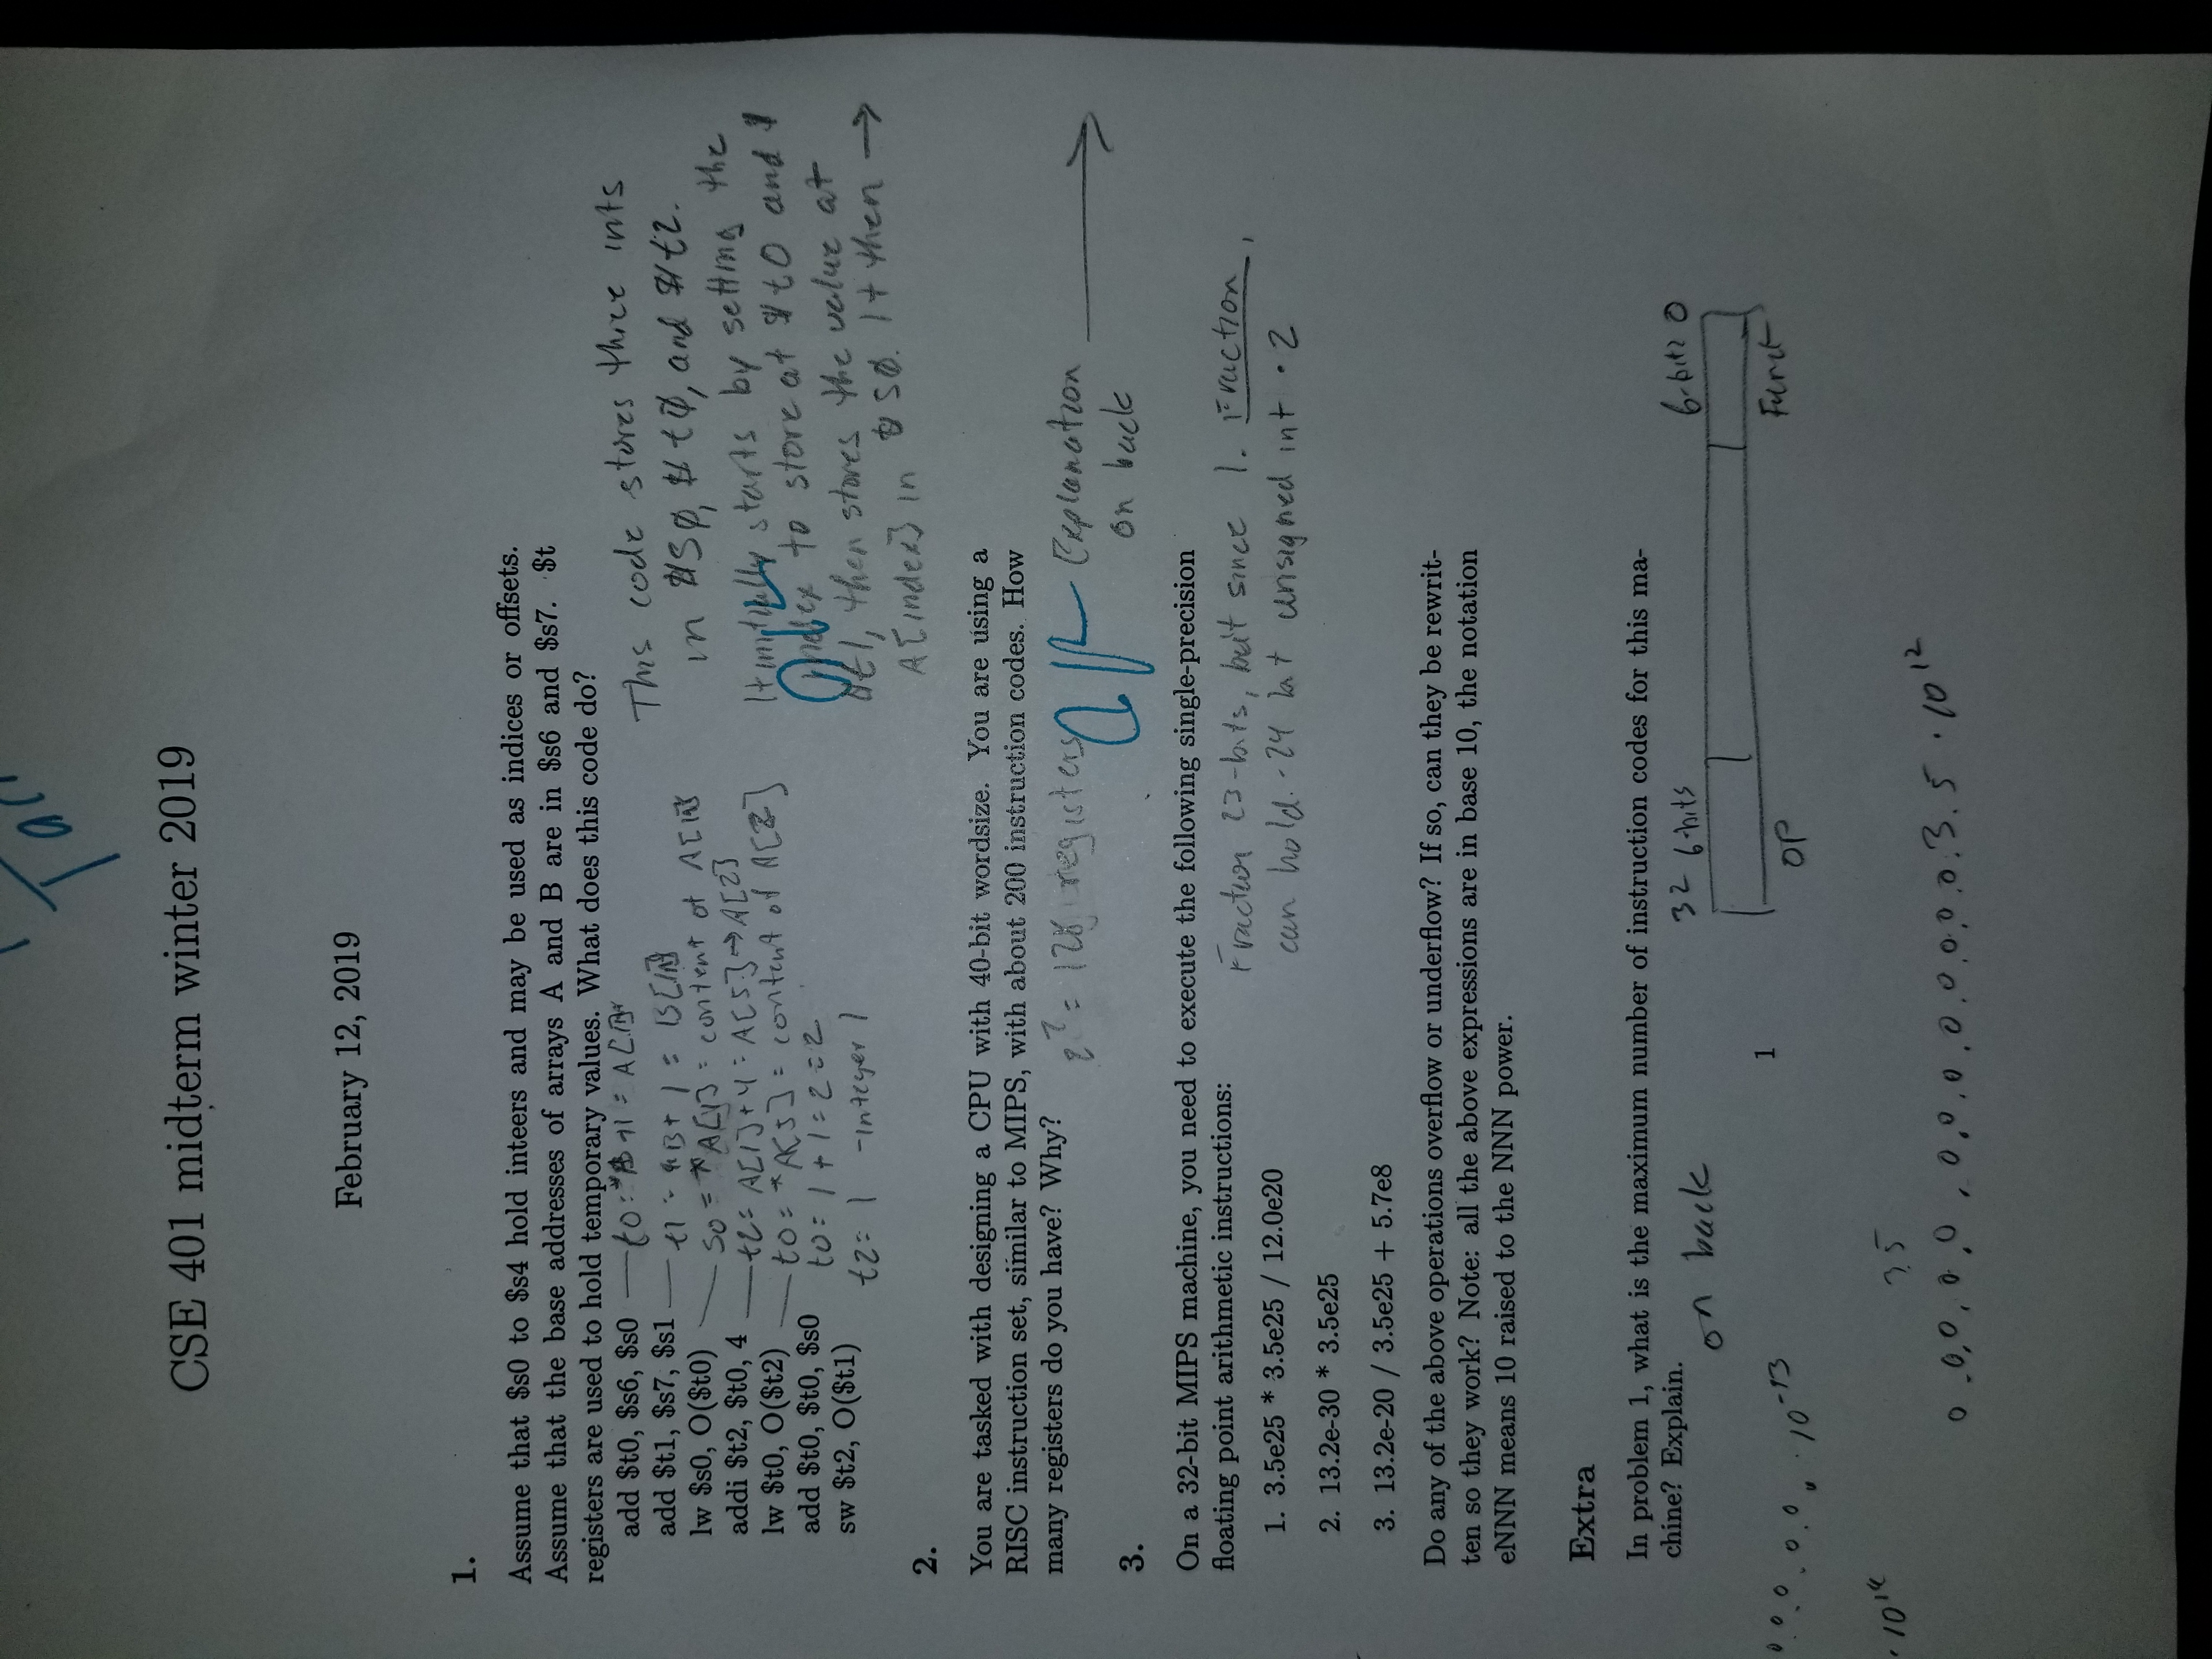 Tar
CSE 401 midterm winter 2019
February 12, 2019
1.
Assume that $s0 to $s4 hold inteers and may be used as indices or offsets.
Assume that the base addresses of arrays A and B are in $s6 and $s7. $t
registers are used to hold temporary values. What does this code do?
add $t0, $s6, $s0
add $t1, $s7, $s1
lw $s0, O($t0)
addi $t2, $t0, 4
lw $t0, O($t2)
add $t0, $t0, $s0
sw $t2, O($t1)
t0:
t1 = B + 1 =
s0 = *A[1] = content of
t2 = A[1]+4 = A[5] → A[2]
t0 = *A[5] = content of A[2]
t0 = 1 + 1 = 2 = 2
t2 = 1 -integer 1
This code stores three ints
in $s0, $t0, and $t2.
It initially starts by setting the
index to store at $t0 and
$t1, then stores the value at
A[index] in $s0. It then →
2.
You are tasked with designing a CPU with 40-bit wordsize. You are using a
RISC instruction set, similar to MIPS, with about 200 instruction codes. How
many registers do you have? Why?
2⁷ = 128 registers
Explanation
on back
3.
On a 32-bit MIPS machine, you need to execute the following single-precision
floating point arithmetic instructions:
Fraction 23-bits, but since 1. Fraction,
can hold 24 bit unsigned int · 2
1. 3.5e25 * 3.5e25 / 12.0e20
2. 13.2e-30 * 3.5e25
3. 13.2e-20 / 3.5e25 + 5.7e8
Do any of the above operations overflow or underflow? If so, can they be rewrit-
ten so they work? Note: all the above expressions are in base 10, the notation
eNNN means 10 raised to the NNN power.
Extra
In problem 1, what is the maximum number of instruction codes for this ma-
chine? Explain.
on back
32 6-bits
6-bits 0
OP
Funct
1
0 0 0 . 0 . 0 . · 10⁻¹³
· 10¹⁴
3.5
0 .0,0, 0,0 , 0,0.0,0,0,0.0.0.3.5 · 10¹²